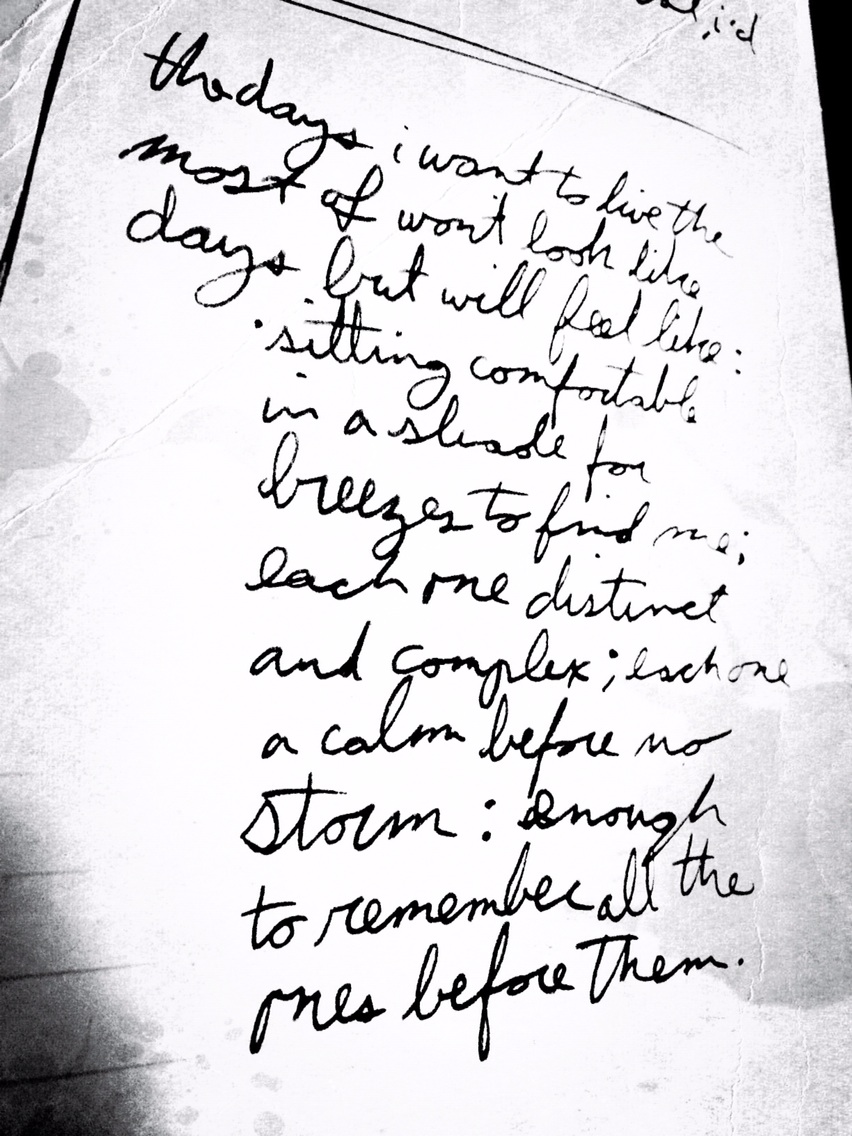 i'd
the days i want to live the
most of won't look like
days but will feel like:
·sitting comfortable
in a shade for
breezes to find me;
each one distinct
and complex; each one
a calm before no
storm: enough
to remember all the
ones before them.